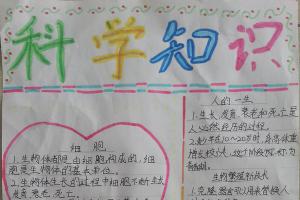 科学知识
细胞
1.生物体都是由细胞构成的,细
胞是生物体的基本单位。
2.生物体生长的过程中细胞不断生长
发育、衰老、死亡。
人的一生
1.生长、发育、衰老和死亡是
人必然经历的过程。
2.少年在10~20岁时,身高体重
增长较快,这个阶段称为
青春期。
生物繁殖新技术